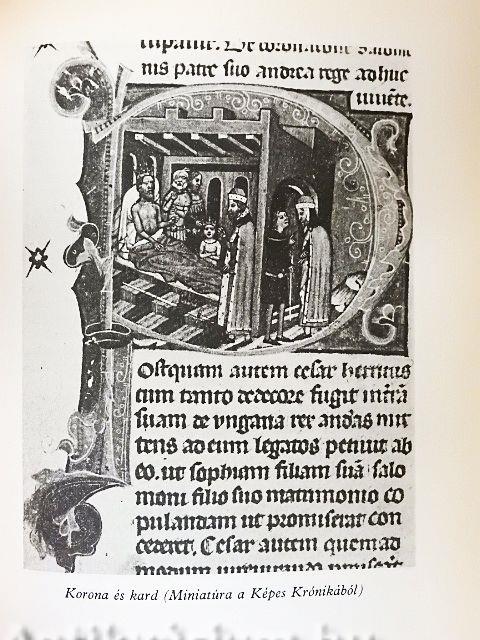 nis patre suo andrea rege adhuc
uiuēte.
Ostquam autem cesar henricus
cum tanto dedecore fugit in terrā
suam de vngaria rex andās mit
tens ad eum legatos petiuit ab
eo. ut sophiam filiam suā salo
moni filio suo matrimonio co
pulandam ut promiserat con
cederet. Cesar autem quemad
modum
Korona és kard (Miniatúra a Képes Krónikából)